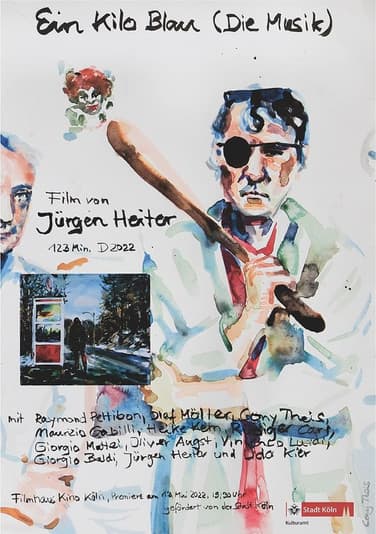 Ein Kilo Blau (Die Musik)
Film von
Jürgen Heiter
123 Min. D 2022
mit Raymond Pettibon, Olaf Möller, Cony Theis,
Maurizio Heike Kern,
Giorgio Oliver Augst,
Giorgio Baldi, Jürgen Heiter und Udo Kier
Filmhaus Kino Köln, Premiere am Mai 2022, 19,30 Uhr
gefördert von der Stadt Köln
Stadt Köln
Kulturamt
Cony Theis